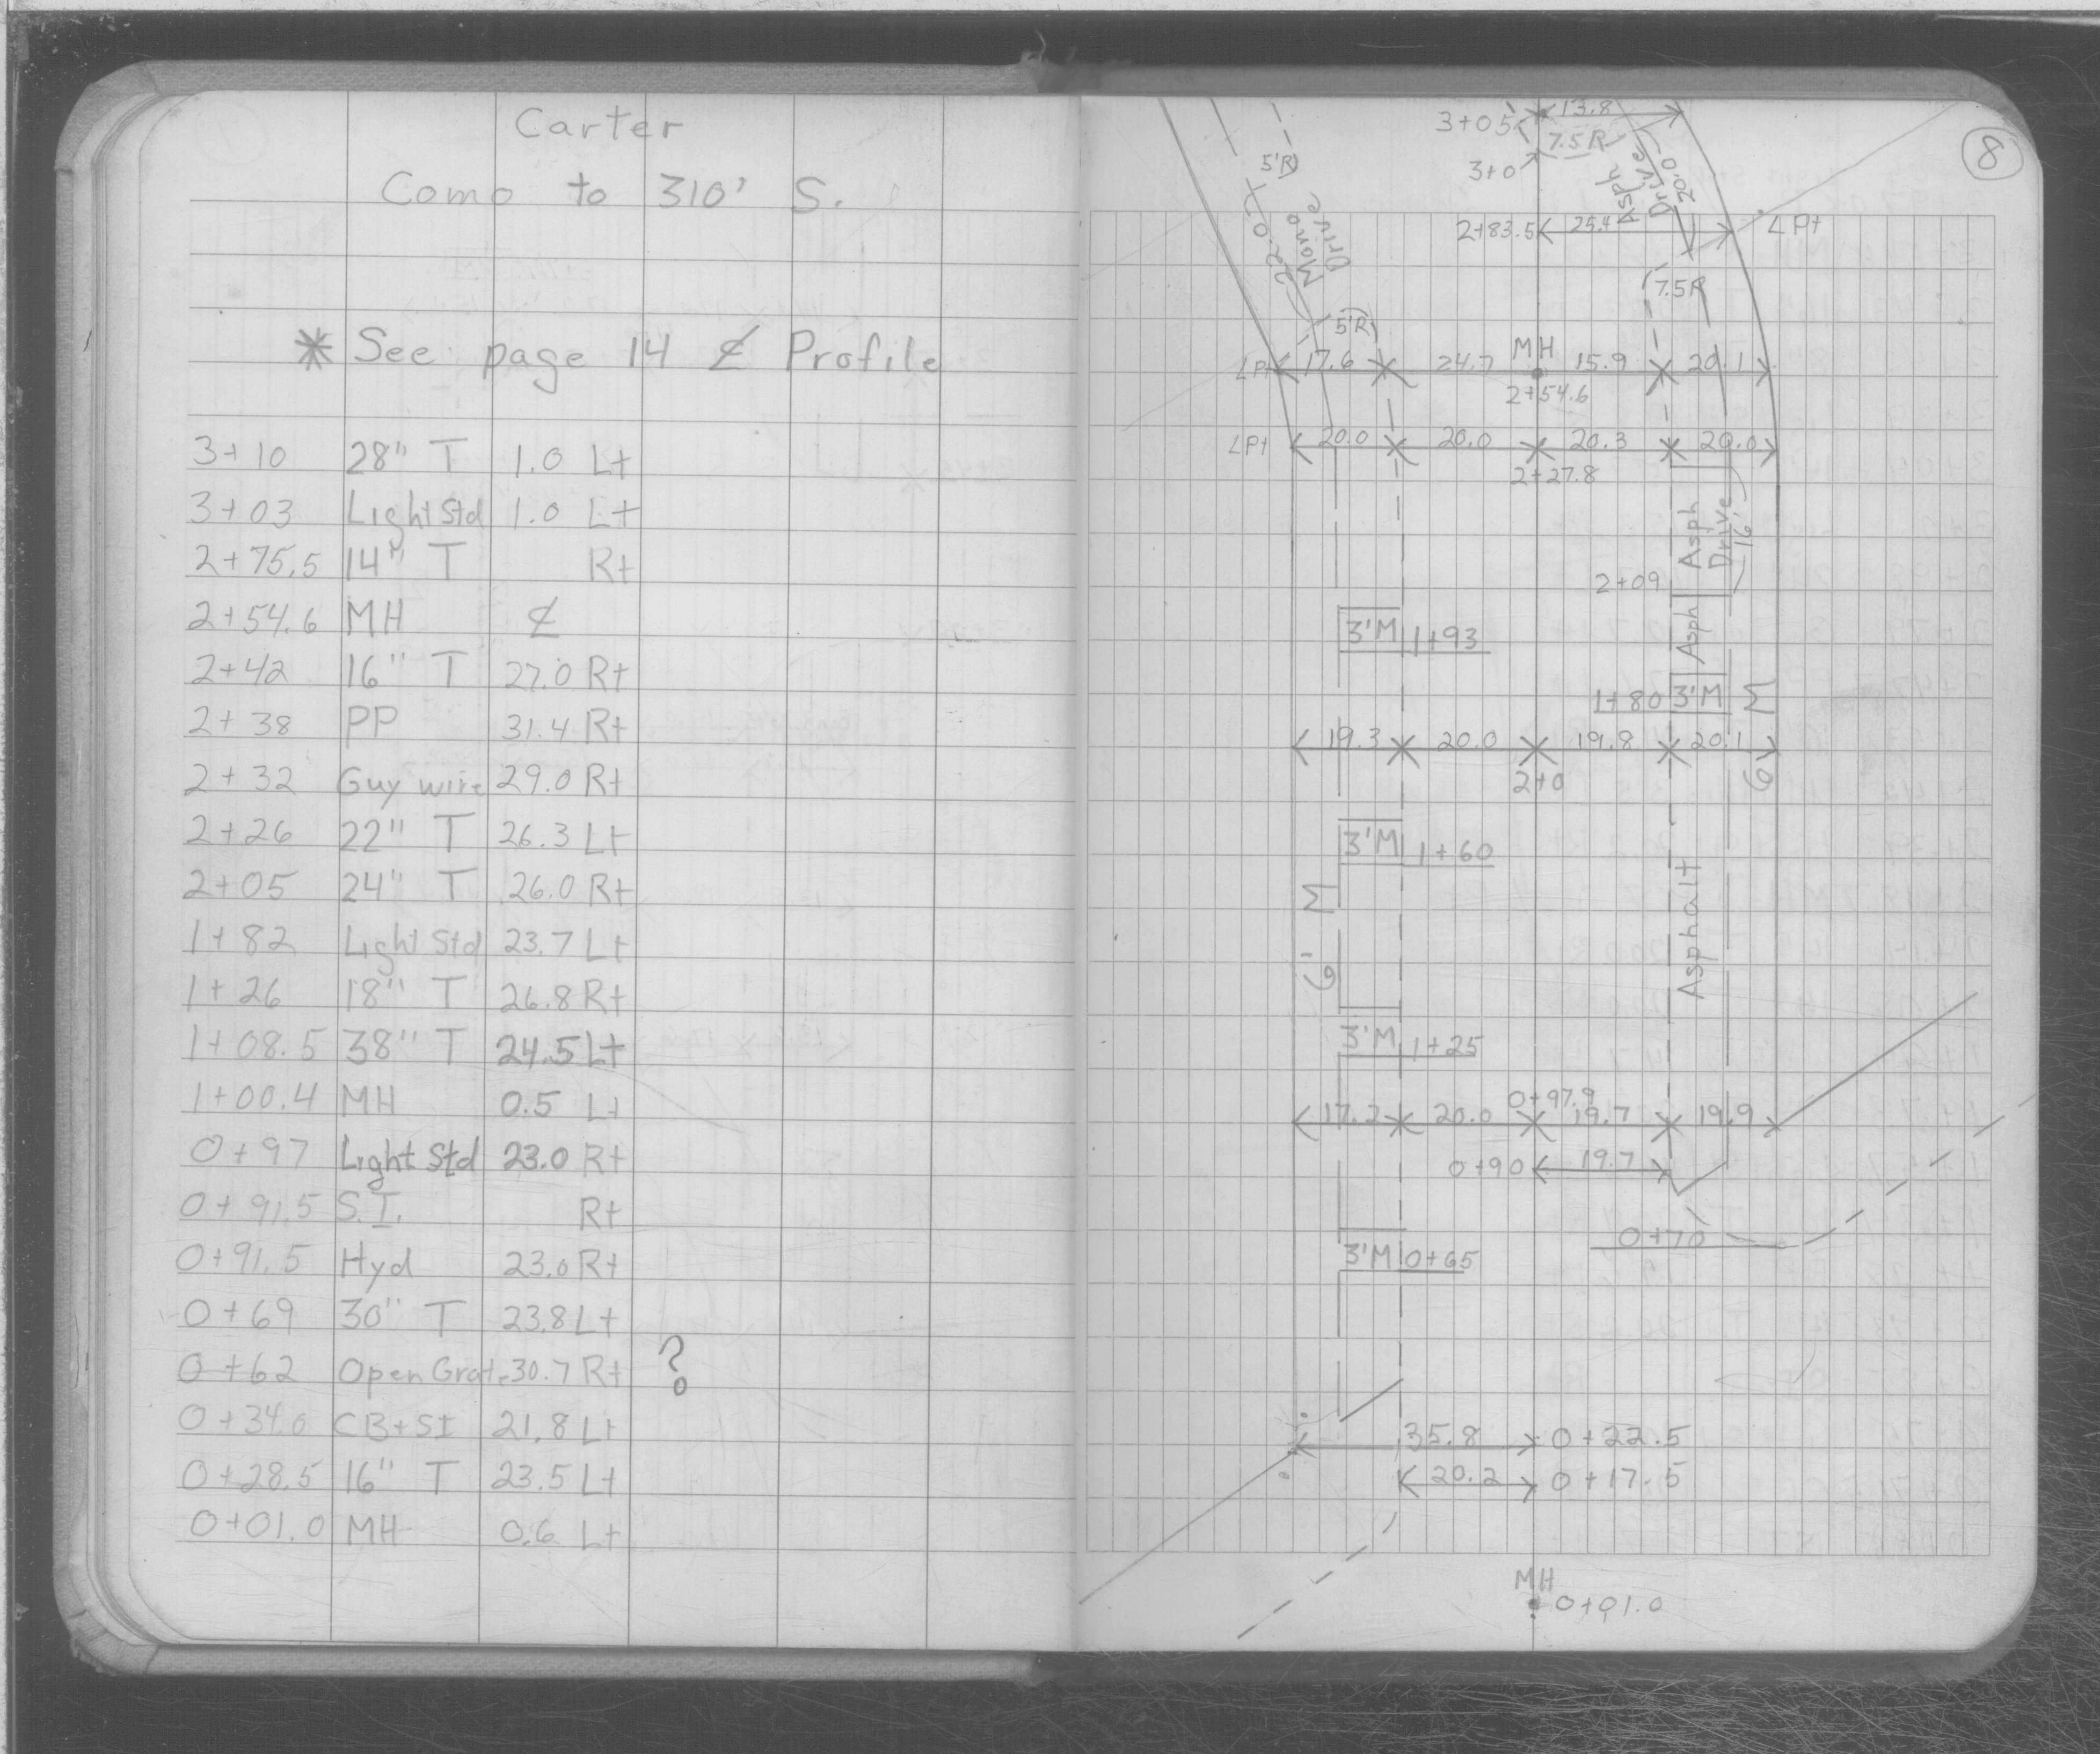 Carter
Como to 310' S.
* See page 14 ₵ Profile
3+10 28" T 1.0 Lt
3+03 Light Std 1.0 Lt
2+75.5 14" T Rt
2+54.6 MH ₵
2+42 16" T 27.0 Rt
2+38 PP 31.4 Rt
2+32 Guy wire 29.0 Rt
2+26 22" T 26.3 Lt
2+05 24" T 26.0 Rt
1+82 Light Std 23.7 Lt
1+26 18" T 26.8 Rt
1+08.5 38" T 24.5 Lt
1+00.4 MH 0.5 Lt
0+97 Light Std 23.0 Rt
0+91.5 S.I. Rt
0+91.5 Hyd 23.0 Rt
0+69 30" T 23.8 Lt
0+62 Open Grate 30.7 Rt ?
0+34.0 CB+SI 21.8 Lt
0+28.5 16" T 23.5 Lt
0+01.0 MH 0.6 Lt
8
3+05 13.8
7.5R
3+0
5'R
Asph Drive 20.0
22.0
Mono Drive
2+83.5 25.4 ∠Pt
7.5R
5'R
MH
∠Pt 17.6 24.7 15.9 20.1
2+54.6
∠Pt 20.0 20.0 20.3 20.0
2+27.8
Asph Drive 16'
2+09
Asph
3'M 1+93
1+80 3'M
6' M
19.3 20.0 19.8 20.1
2+0
3'M 1+60
6' M
Asphalt
3'M 1+25
0+97.9
17.2 20.0 19.7 19.9
0+90 19.7
0+70
3'M 0+65
35.8 0+22.5
20.2 0+17.5
MH
0+01.0